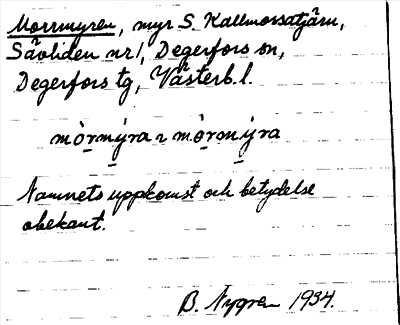 Morrmyren, myr S. Kallmorsatjärn,
Sävliden nr 1, Degerfors sn,
Degerfors tg, Västerb. l.
mòrmýra ~ mòrmýra
Namnets uppkomst och betydelse
obekant.
B. Nygren 1934.